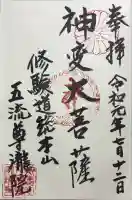 奉拝
令和元年七月十二日
神変大菩薩
修験道総本山
五流尊瀧院